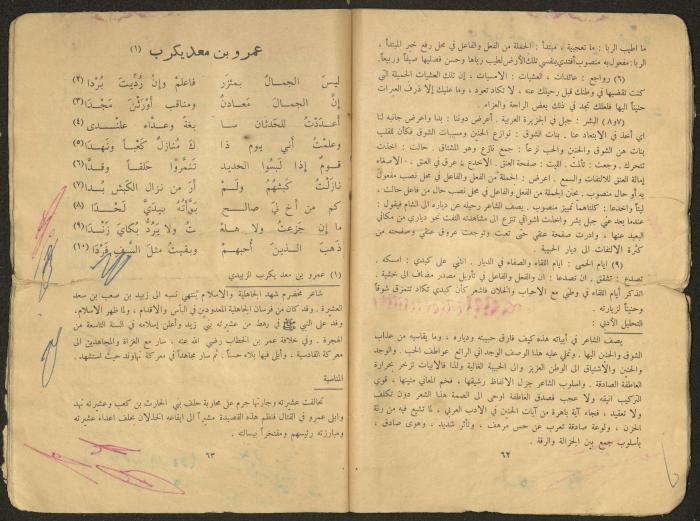 ما اطيب الربا : ما تعجبية ، مبتدأ : الجملة من الفعل والفاعل في محل رفع خبر المبتدأ ،
الربا : مفعول به منصوب أفتدي بنفسي تلك الأرض لطيب رباها وحسن فصليها صيفاً وربيعاً.
(٦) رواجع : عائدات ، العشيات : الامسيات ، إن تلك العشيات الجميلة التي
كنت تقضيها في وطنك قبل رحيلك عنه ، لا تكاد تعود ، وما عليك إلا ذرف العبرات
حنيناً اليها فلعلك تجد في ذلك بعض الراحة والعزاء .
(٧و٨) البشر : جبل في الجزيرة العربية . أعرض دوننا : بدا واعرض جانبه لنا
اي أخذ في الابتعاد عنا . بنات الشوق : نوازع الحنين ومسببات الشوق فكأن للقلب
بنات هن الشوق والحنين والحب نزعاً : جمع نازع وهو المشتاق . حالت : اخذت
تتحرك . وجعت : تألمت . الليت : صفحة العنق . الاخدع : عرق في العنق ، الاصغاء
إمالة العنق للالتفات والسمع . اعرض : الجملة من الفعل والفاعل في محل نصب مفعول
به أو حال منصوب . يحنن الجملة من الفعل والفاعل في محل نصب حال من فاعل حالت ،
ليتاً واخدعا : كلتاهما تمييز منصوب . يصف الشاعر رحيله عن دياره الى الشام فيقول :
عندما بعد عني جبل بشر واخذت اشواقي تنزع الى مشاهدته التفت نحو دياري من مكاني
البعيد عنها ، وادرت صفحة عنقي حتى تعبت وتوجعت عروق عنقي وصفحته من
كثرة الالتفات الى ديار الحبيبة .
(٩) ايام الحمى : ايام اللقاء والصفاء في الديار . انثني على كبدي : امسكه .
تصدع : تشقق . ان تصدعا : ان والفعل والفاعل في تأويل مصدر مضاف الى خشية .
اتذكر أيام اللقاء في وطني مع الاحباب والخلان فاشعر كأن كبدي تكاد تتمزق شوقاً
وحنيناً لزيارته .
التحليل الأدبي :
يصف الشاعر في أبياته هذه كيف فارق حبيبته ودياره ، وما يقاسيه من عذاب
الشوق والحنين اليها . وتملي عليه هذا الوصف الوجداني الرائع عواطف الحب . والوجد
والحنين والاشتياق الى الوطن العزيز والى الحبيبة الغالية ولذا فالابيات تزخر بحرارة
العاطفة الصادقة . واسلوب الشاعر جزل الالفاظ رشيقها ، فخم المعاني متينها ، قوي
التركيب انيقه ولا عجب فصدق العاطفة اوحى الى الصمة هذا الشعر دون تكلف
ولا تعقيد ، فجاء آية باهرة من آيات الحنين في الادب العربي ، لما تشيع فيه من رنة
الحزن ، ولوعة صادقة تعرب عن حس مرهف ، وتأثر شديد ، وهوى صادق ،
بأسلوب جمع بين الجزالة والرقة .
٦٢
عمرو بن معد يكرب (١)
ليسَ الجمالُ بمئزر فاعلم وإنْ رُدِّيتَ بُرْدا (٢)
إنَّ الجمالَ معادنٌ ومناقبٌ أوْرَثْنَ مَجْدَا (٣)
أعدَدْتُ للحَدثان سا بغةً وعدَّاء علَنْدى (٤)
وعلمتُ أني يوم ذا كَ مُنازلٌ كَعْباً ونَهدَا (٥)
قومٌ إذا لَبسُوا الحديد تَنَمَّرُوا حَلَقاً وقدَّا (٦)
نازَلْتُ كَبْشَهُمْ ولَمْ أرَ من نزال الكَبْش بُدا (٧)
كم من أخ ليَ صالح بوَّأتُهُ بيَديَّ لَحْدَا (٨)
ما إن جَزعتُ ولا هلعْـ تُ ولا يَرُدُّ بُكايَ زَنْدَا (٩)
ذهَبَ الذينَ أُحبهمْ وبقيتُ مثلَ السَّيف فَرْدَا (١٠)
(١) عمرو بن معد يكرب الزبيدي
شاعر مخضرم شهد الجاهلية والاسلام ينتهي نسبه الى زبيد بن صعب بن سعد
العشيرة . وقد كان من فرسان الجاهلية المعدودين في البأس والاقدام ، ولما ظهر الاسلام ،
وفد على النبي ﷺ في رهط من عشيرته بني زيد وأعلن إسلامه في السنة التاسعة من
الهجرة . وفي خلافة عمر بن الخطاب رضي الله عنه ، سار مع الغزاة والمجاهدين الى
معركة القادسية ، وأبلى فيها بلاء حسناً . ثم سار مجاهداً في معركة نهاوند حيث استشهد .
المناسبة
تحالفت عشيرته وجارتها جرم على محاربة حلف بني الحارث بن كعب وعشيرته نهد
وابلى عمرو في القتال فنظم هذه القصيدة مشيراً الى ايقاعه الخذلان بحلف اعداء عشيرته
ومبارزته رئيسهم ومفتخراً ببسالته .
٦٣